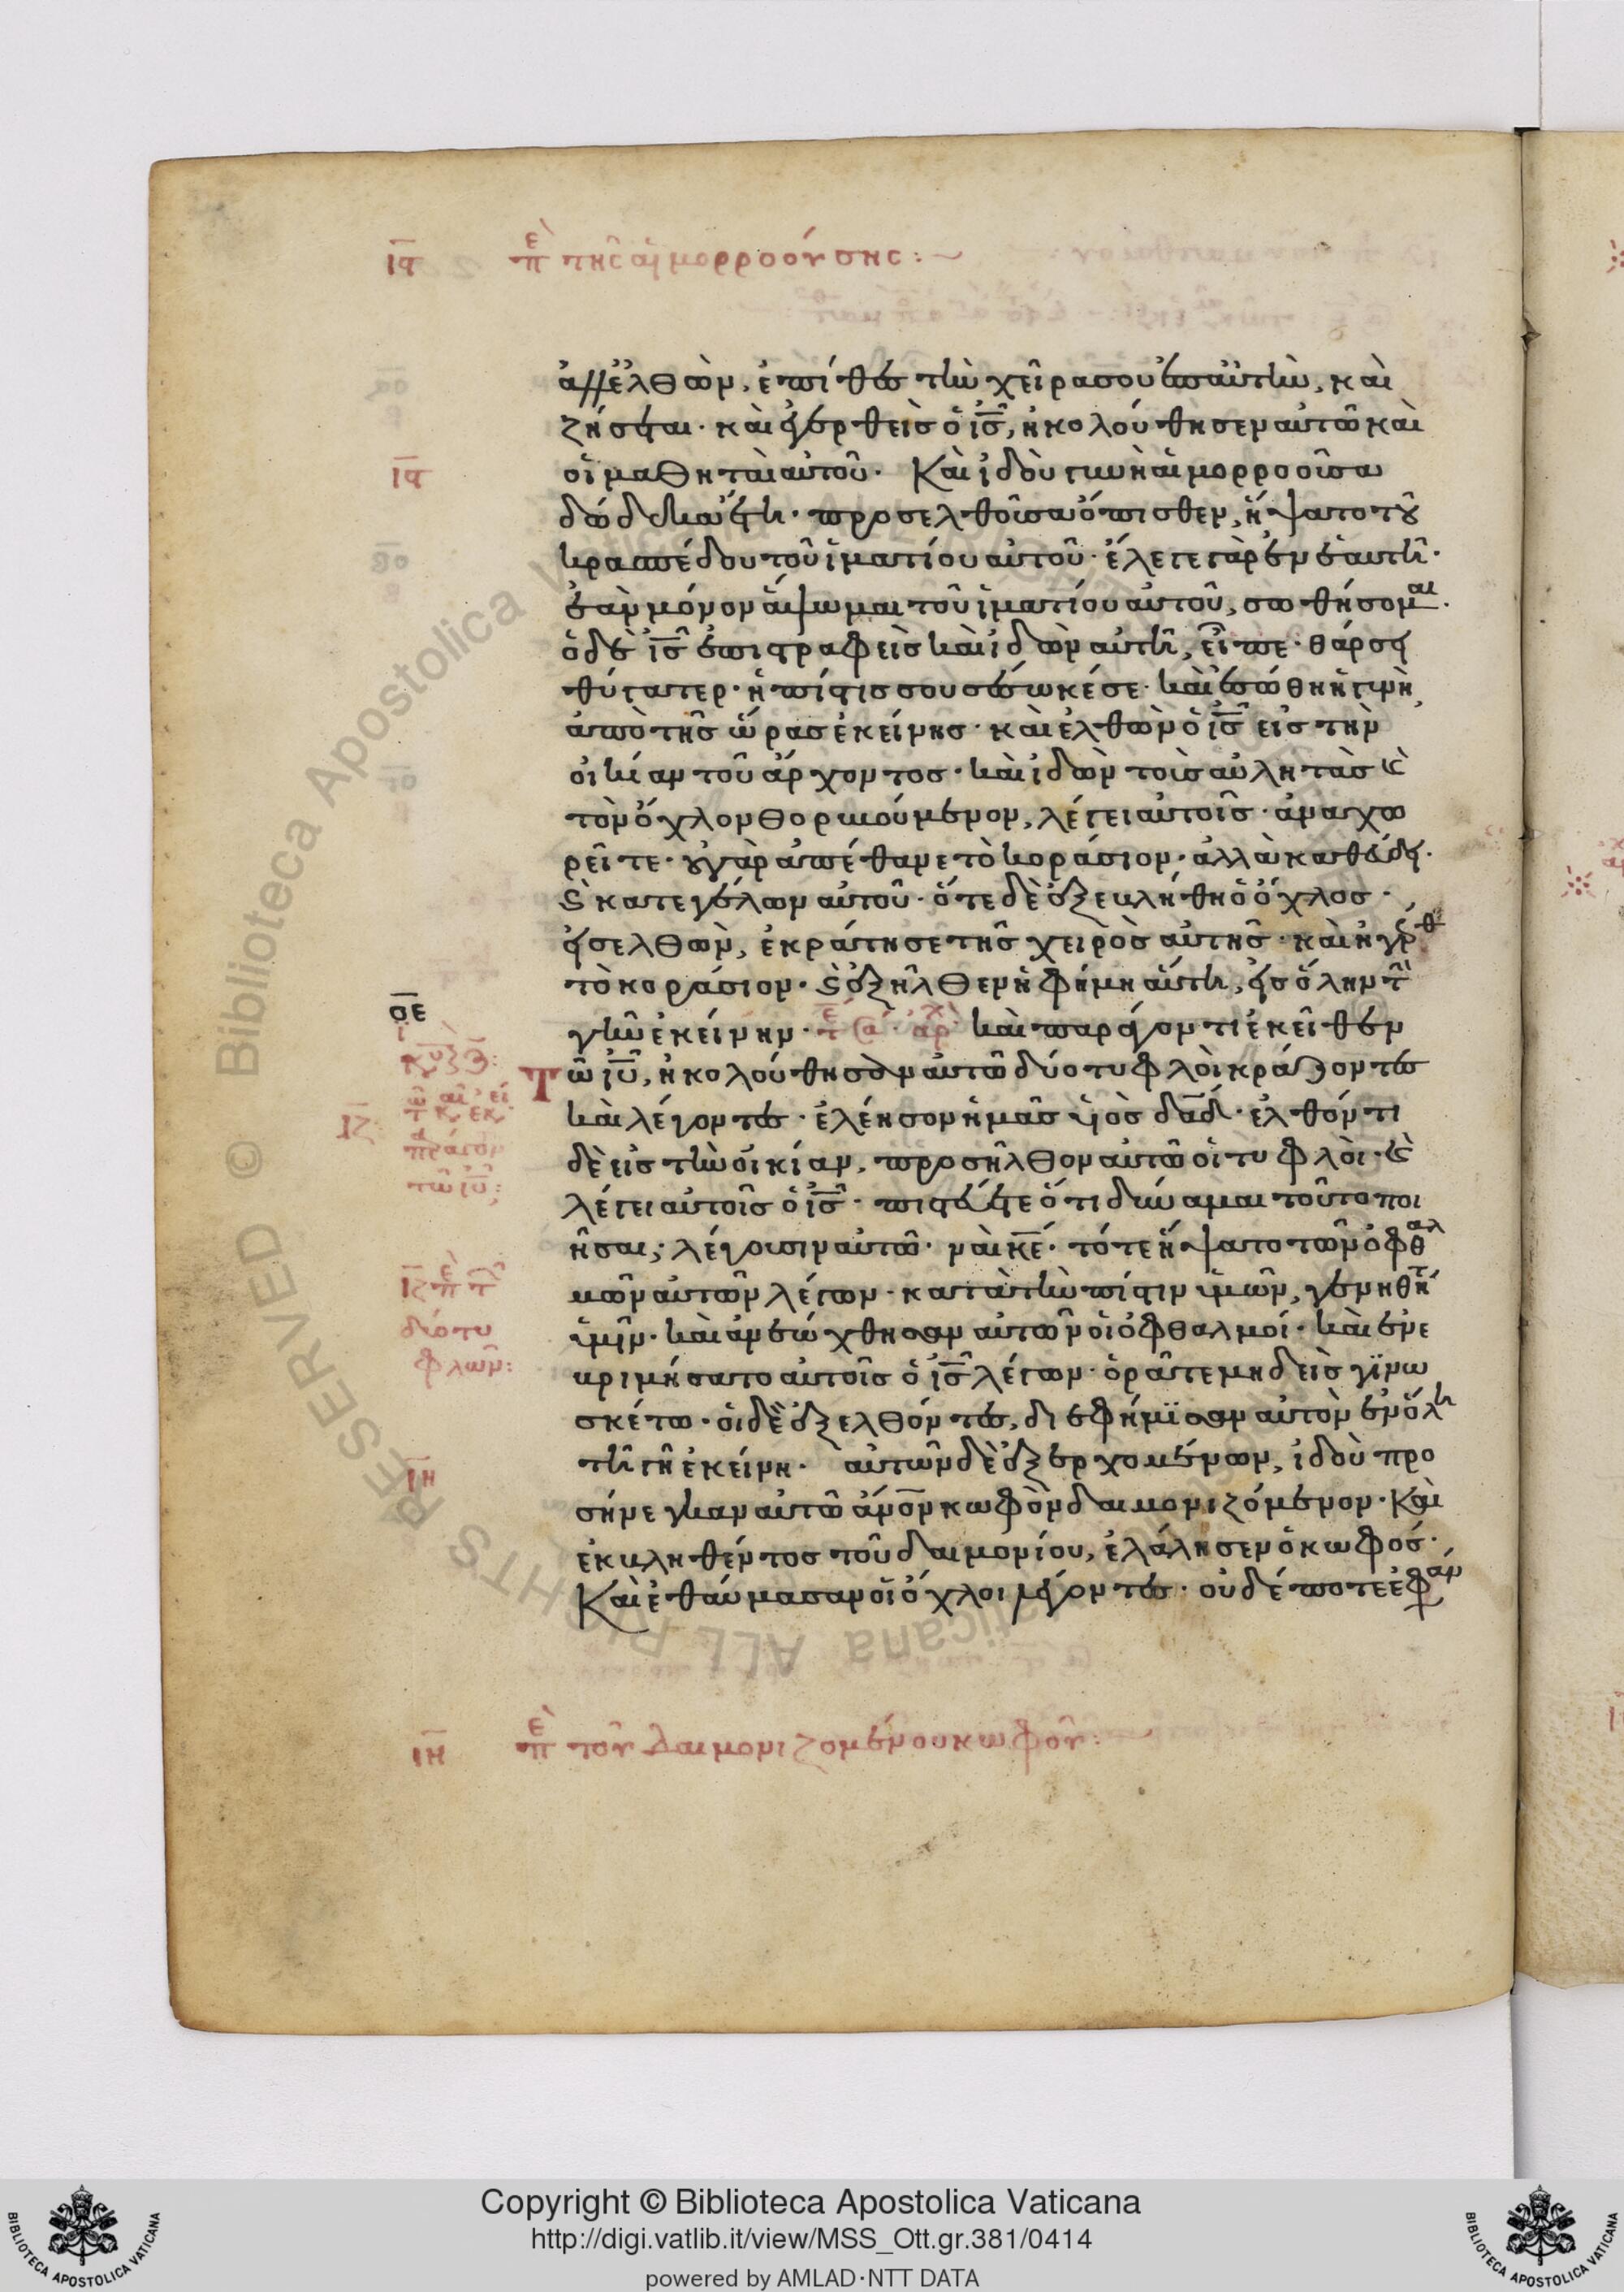 ιϛ πε της αἱμορροούσης:~
ἀλλ' ἐλθὼν, ἐπίθες τὴν χεῖρα σου ἐπ' αὐτὴν, καὶ
ζήσεται· καὶ ἐγερθεὶς ὁ ις, ἠκολούθησεν αὐτῶ καὶ
ιϛ
οἱ μαθηταὶ αὐτοῦ· Καὶ ἰδοὺ γυνὴ αἱμορροοῦσα
δώδεκα ἔτη· προσελθοῦσα ὄπισθεν, ἥψατο τοῦ
κρασπέδου τοῦ ἱματίου αὐτοῦ· ἔλεγε γὰρ ἐν ἑαυτῆ·
ἐὰν μόνον ἅψωμαι τοῦ ἱματίου αὐτοῦ, σωθήσομαι·
ὁ δὲ ις ἐπιστραφεὶς καὶ ἰδὼν αὐτὴν, εἶπε· θάρσει
θύγατερ· ἡ πίστις σου σέσωκέ σε· καὶ ἐσώθη ἡ γυνὴ,
ἀπὸ τῆς ὥρας ἐκείνης· καὶ ἐλθὼν ὁ ις εἰς τὴν
οἰκίαν τοῦ ἄρχοντος· καὶ ἰδὼν τοὺς αὐλητὰς καὶ
τὸν ὄχλον θορυβούμενον, λέγει αὐτοῖς· ἀναχω
ρεῖτε· οὐ γὰρ ἀπέθανε τὸ κοράσιον· ἀλλὰ καθεύδει·
καὶ κατεγέλων αὐτοῦ· ὅτε δὲ ἐξεβλήθη ὁ ὄχλος·
εἰσελθὼν, ἐκράτησε τῆς χειρὸς αὐτῆς· καὶ ἠγέρθη
τὸ κοράσιον· καὶ ἐξῆλθεν ἡ φήμη αὕτη, εἰς ὅλην τὴν
οε
γῆν ἐκείνην· καὶ παράγοντι ἐκεῖθεν
Τῶ ιυ, ἠκολούθησαν αὐτῶ δύο τυφλοὶ κράζοντες
ιζ
καὶ λέγοντες· ἐλέησον ἡμᾶς υἱὸς δαδ· ἐλθόντι
δὲ εἰς τὴν οἰκίαν, προσῆλθον αὐτῶ οἱ τυφλοὶ· καὶ
λέγει αὐτοῖς ὁ ις· πιστεύετε ὅτι δύναμαι τοῦτο ποι
ῆσαι; λέγουσιν αὐτῶ· ναὶ κε· τότε ἥψατο τῶν ὀφθαλ
ιζ πε τ
δύο τυ
φλῶν:
μῶν αὐτῶν λέγων· κατὰ τὴν πίστιν ὑμῶν, γενηθήτ
ὑμῖν· καὶ ἀνεώχθησαν αὐτῶν οἱ ὀφθαλμοί· καὶ ἐνε
βριμήσατο αὐτοῖς ὁ ις λέγων· ὁρᾶτε μηδεὶς γϊνω
σκέτω· οἱ δὲ ἐξελθόντες, διεφήμϊσαν αὐτὸν ἐν ὅλη
ιη
τῆ γῆ ἐκείνη· αὐτῶν δὲ ἐξερχομένων, ἰδοὺ προ
σήνεγκαν αὐτῶ ἄνον κωφὸν δαιμονιζόμενον· Καὶ
ἐκβληθέντος τοῦ δαιμονίου, ἐλάλησεν ὁ κωφός·
Καὶ ἐθαύμασαν οἱ ὄχλοι λέγοντες· οὐδέποτε ἐφάν
ιη πε τοῦ δαιμονιζομένου κωφοῦ:
Copyright © Biblioteca Apostolica Vaticana
http://digi.vatlib.it/view/MSS_Ott.gr.381/0414
powered by AMLAD·NTT DATA